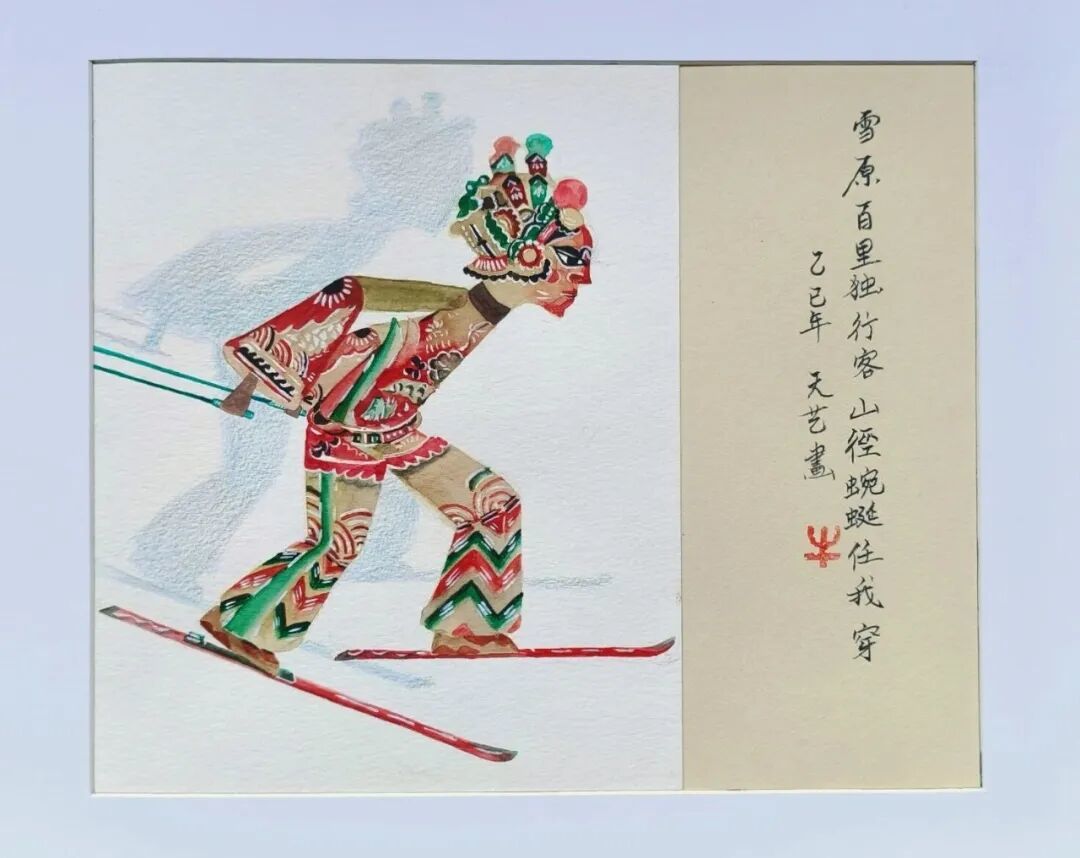 雪原百里独行客山徑蜿蜒任我穿
乙巳年 天艺畫